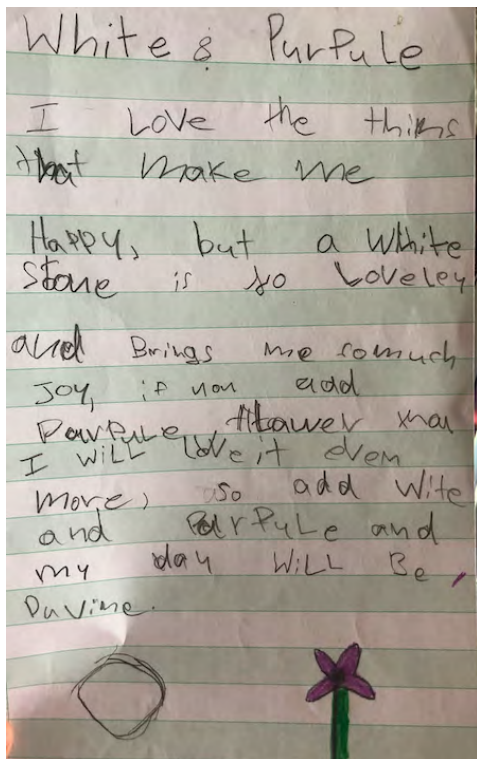 White & Purpule
I Love the thins
that make me
Happy, but a White
Stone is so Loveley
and Brings me somuch
Joy, if you add
Parpule, flawer
I will love it even
more, so add Wite
and ParPyLe and
my day WiLL Be
Davine.